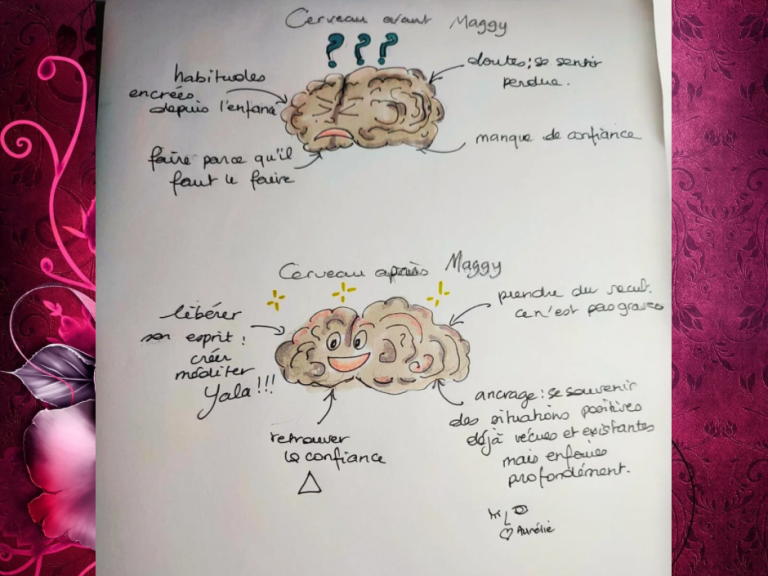 Cerveau avant Maggy
? ? ?
habitudes
encrées
depuis l'enfance
doutes; se sentir
perdue.
manque de confiance
faire parce qu'il
faut le faire
Cerveau après Maggy
libérer
son esprit :
créer
méditer
Yala !!!
prendre du recul.
ce n'est pas grave
retrouver
la confiance
ancrage : se souvenir
des situations positives
déjà vécues et existantes
mais enfouies
profondément.
Aurélie